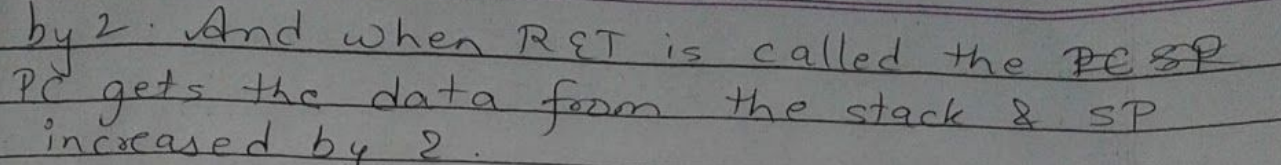 by 2. And when RET is called the PC SP
PC gets the data from the stack & SP
increased by 2.